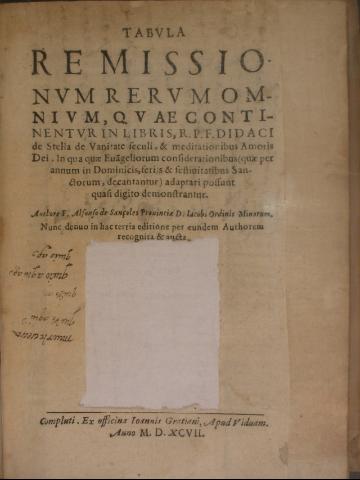 TABVLA
REMISSIO-
NVM RERVM OM-
NIVM, QVAE CONTI-
NENTVR IN LIBRIS, R. P. F. DIDACI
de Stella de Vanitate seculi, & meditationibus Amoris
Dei. In qua quæ Euāgeliorum considerationibus (quæ per
annum in Dominicis, ferijs & festiuitatibus San-
ctorum, decantantur) adaptari possunt
quasi digito demonstrantur.
Authore F. Alfonso de Sançoles Prouintiæ D. Iacobi Ordinis Minorum.
Nunc denuo in hac tertia editione per eundem Authorem
recognita & aucta.
Compluti. Ex officina Ioannis Gratiani, Apud Viduam.
Anno M. D. XCVII.